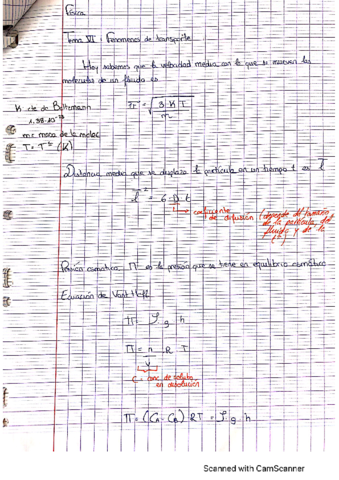 Física
Tema VI: Fenomenos de transporte
Hoy sabemos que la velocidad media con la que se mueven las
moléculas de un fluido es
K cte de Boltzmann
1.38·10⁻²³
m = masa de la molec
T = Tª (K)
v = √(3 K T / m)
Distancia media que se desplaza la partícula en un tiempo t es l
l² = 6 D t
→ coeficiente de difusión (depende del tamaño de la partícula, del fluido y de la Tª)
Presión osmótica: Π es la presión que se tiene en equilibrio osmótico
Ecuación de Vant Hoff
Π = ρ · g · h
Π = n/V R T
C = conc. de soluto en disolución
Π = (CA - CB) RT = ρ · g · h
Scanned with CamScanner